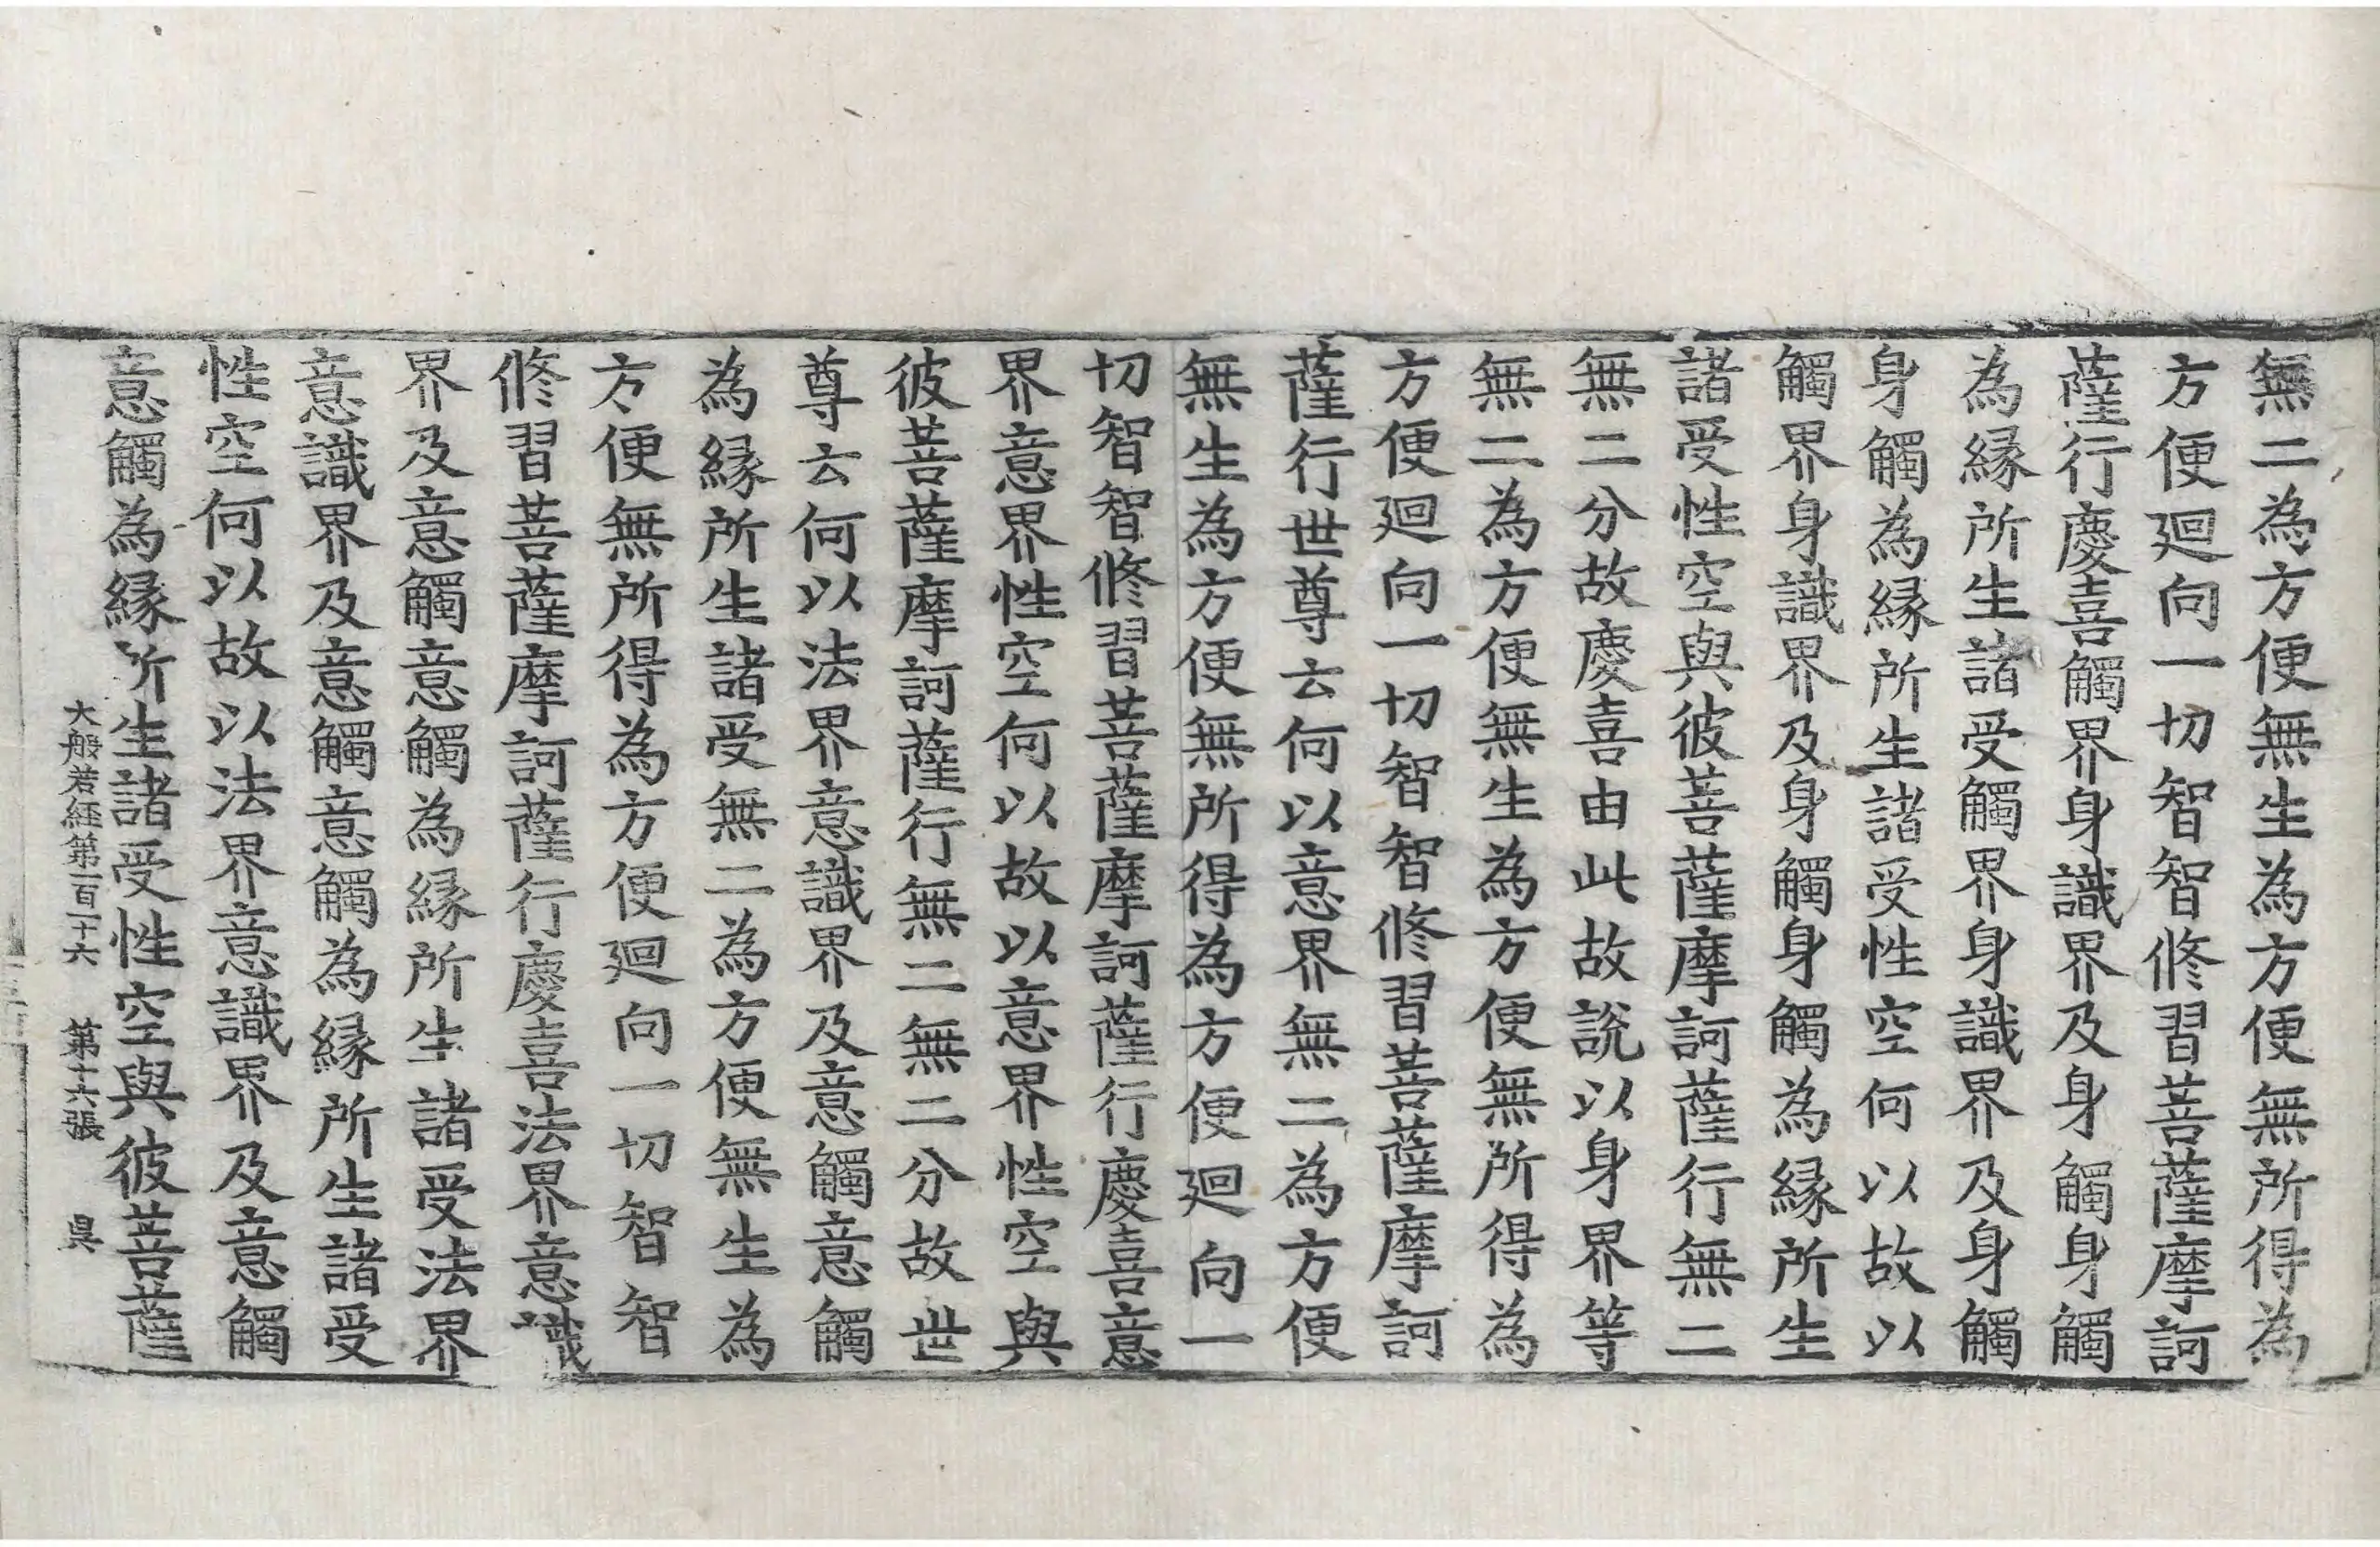 無二為方便無生為方便無所得為
方便廻向一切智智修習菩薩摩訶
薩行慶喜觸界身識界及身觸身觸
為緣所生諸受觸界身識界及身觸
身觸為緣所生諸受性空何以故以
觸界身識界及身觸身觸為緣所生
諸受性空與彼菩薩摩訶薩行無二
無二分故慶喜由此故說以身界等
無二為方便無生為方便無所得為
方便廻向一切智智修習菩薩摩訶
薩行世尊云何以意界無二為方便
無生為方便無所得為方便廻向一
切智智修習菩薩摩訶薩行慶喜意
界意界性空何以故以意界性空與
彼菩薩摩訶薩行無二無二分故世
尊云何以法界意識界及意觸意觸
為緣所生諸受無二為方便無生為
方便無所得為方便廻向一切智智
修習菩薩摩訶薩行慶喜法界意識
界及意觸意觸為緣所生諸受法界
意識界及意觸意觸為緣所生諸受
性空何以故以法界意識界及意觸
意觸為緣所生諸受性空與彼菩薩
大般若經第一百二十六 第十六張 昃